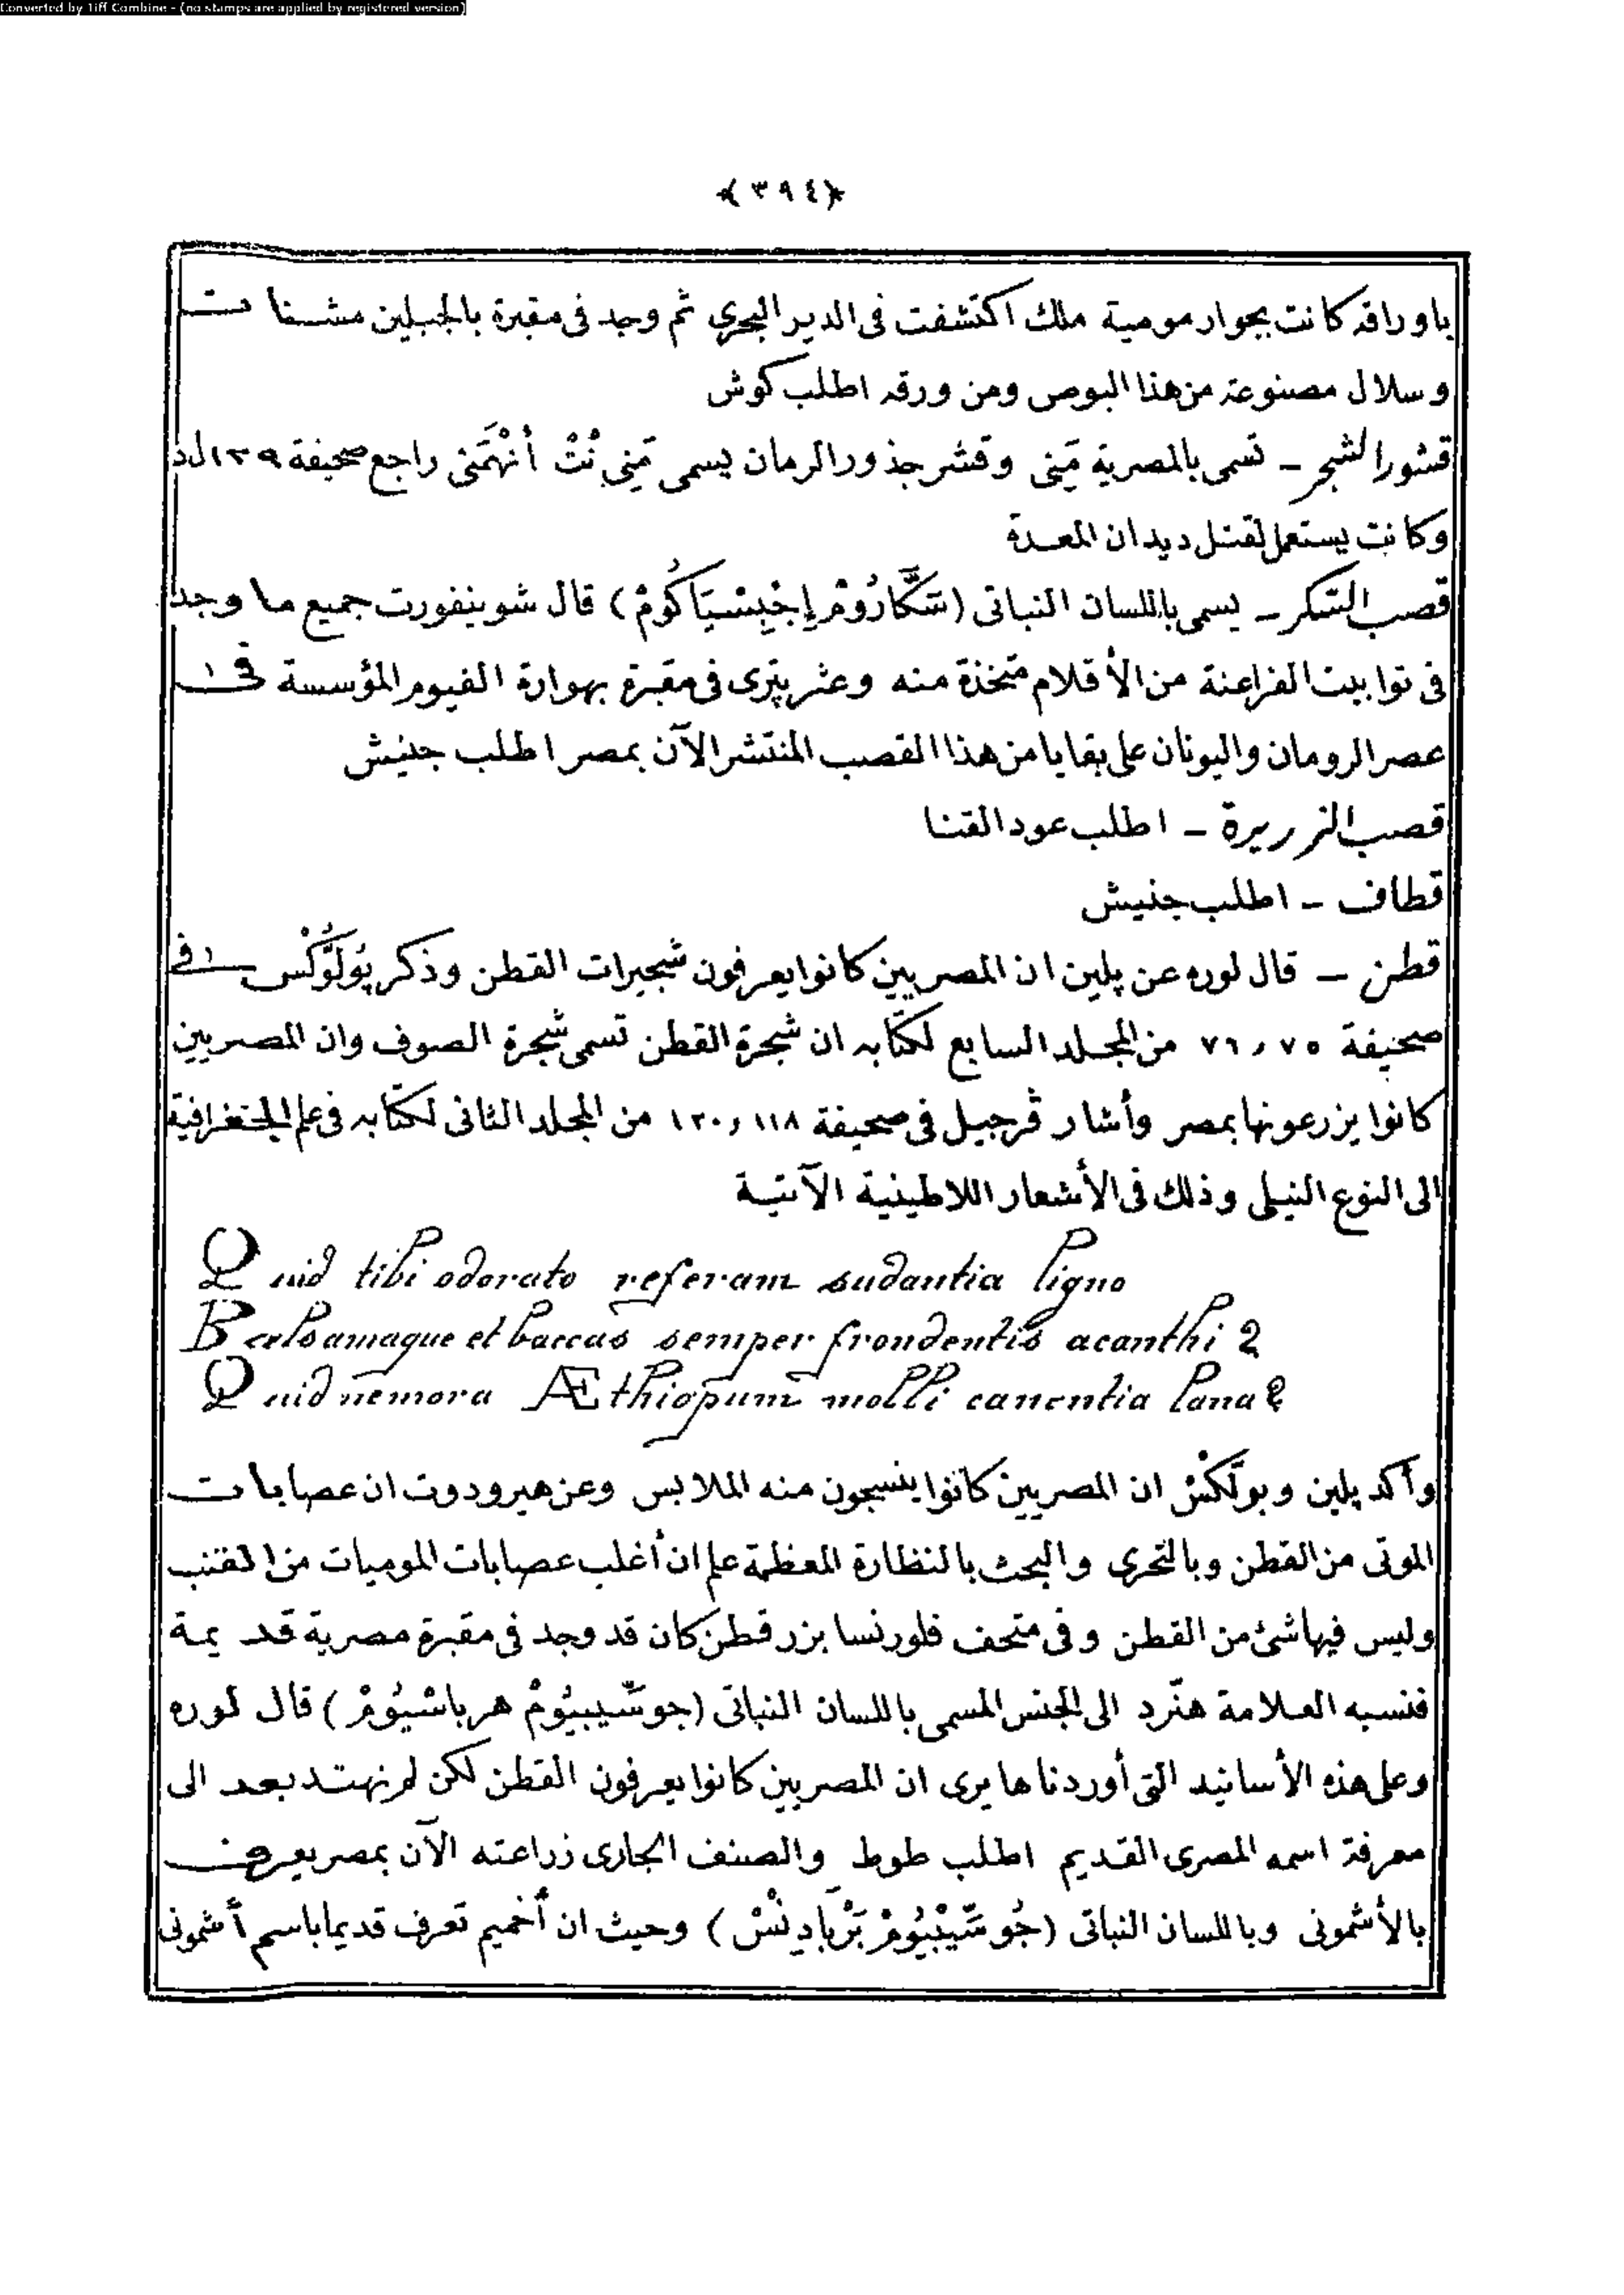 Converted by Tiff Combine - (no stamps are applied by registered version)
﴿٣٩٤﴾
باوراقه كانت بجوار مومية ملك اكتشفت فى الدير البحرى ثم وجد فى مقبرة بالجبلين مشنات
وسلال مصنوعة من هذا البوص ومن ورقه اطلب كوش
قشور الشجر ــ تسمى بالمصرية مَينى وقشر جذور الرمان يسمى مَينى نْتْ أَنْهَمَنى راجع صحيفة ١٣٩ لد
وكانت يستعمل لقتل ديدان المعدة
قصب السكر ــ يسمى باللسان النباتى (سَكَّارُومْ إِجِبْسْيَاكُومْ) قال شوينفورت جميع ما وجد
فى توابيت الفراعنة من الأقلام متخذة منه وعثر پترى فى مقبرة بهوارة الفيوم المؤسسة فى
عصر الرومان واليونان على بقايا من هذا القصب المنتشر الآن بمصر اطلب جنيش
قصب الزريرة ــ اطلب عود القنا
قطاف ــ اطلب جنيش
قطن ــ قال لوره عن پلين ان المصريين كانوا يعرفون شجيرات القطن وذكر پُولُّوكْس فى
صحيفة ٧٥ر٧٦ من المجلد السابع لكتابه ان شجرة القطن تسمى شجرة الصوف وان المصريين
كانوا يزرعونها بمصر وأشار ڤرجيل فى صحيفة ١١٨ر١٢٠ من المجلد الثانى لكتابه فى علم الجغرافية
الى النوع النيلى وذلك فى الأشعار اللاطينية الآتية
Quid tibi odorato referam sudantia ligno
Balsamaque et baccas semper frondentis acanthi ?
Quid nemora Æthiopum molli canentia lana ?
وأكد پلين وبولّكسْ ان المصريين كانوا ينسجون منه الملابس وعن هيرودوت ان عصابات
الموتى من القطن وبالتحرى والبحث بالنظارة المعظمة علم ان أغلب عصابات الموميات من القنب
وليس فيها شئ من القطن وفى متحف فلورنسا بزر قطن كان قد وجد فى مقبرة مصرية قديمة
فنسبه العلامة هنّرد الى الجنس المسمى باللسان النباتى (جوسّيبيُومْ هرباسْيُومْ) قال لوره
وعلى هذه الأسانيد التى أوردناها يرى ان المصريين كانوا يعرفون القطن لكن لم نهتد بعد الى
معرفة اسمه المصرى القديم اطلب طوط والصنف الجارى زراعته الآن بمصر يعرف
بالأشمونى وباللسان النباتى (جُوسّيْبْيُومْ بَرْبَادِنْسْ) وحيث ان أخميم تعرف قديما باسم أشمونى